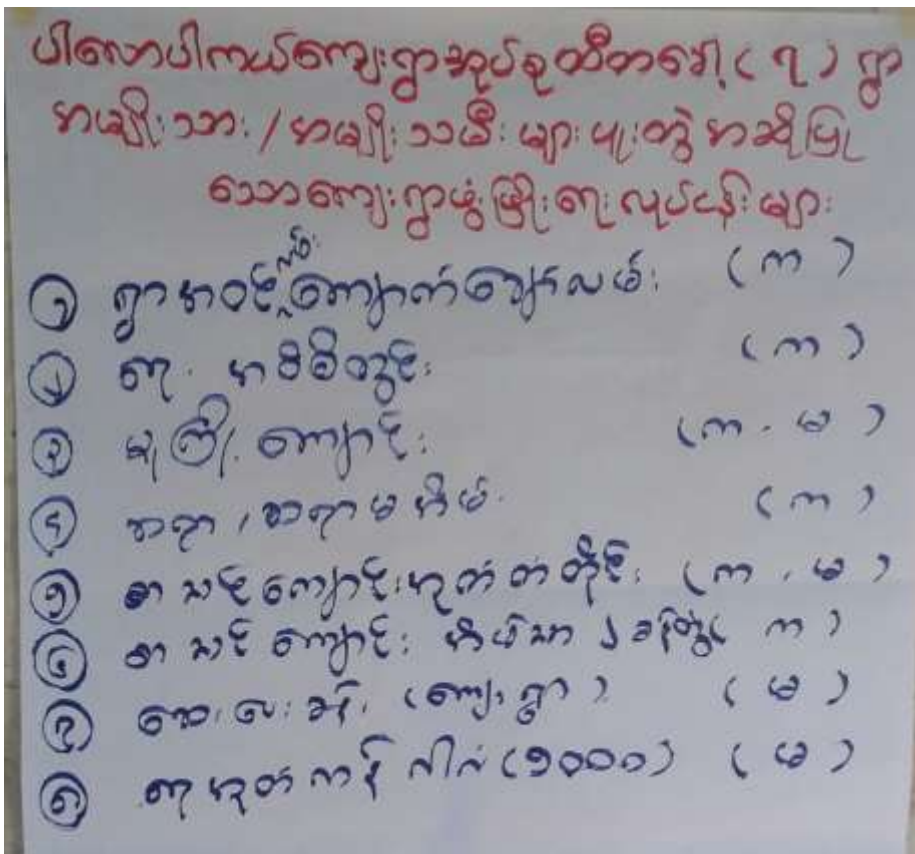 ပါလောပါကယ်ကျေးရွာအုပ်စုထီတခေါ့ ( ၇ ) ရွာ
အမျိုးသား / အမျိုးသမီး များ ပူးတွဲ အဆိုပြု
သောကျေးရွာဖွံ့ဖြိုးရေး လုပ်ငန်း များ
၁ ရွာ အဝင်ကျောက်ချောလမ်း ( က )
၂ ရေ အဝီစိတွင်း ( က )
၃ မူကြို ကျောင်း ( က ၊ မ )
၄ ဆရာ ၊ ဆရာမ အိမ် ( က )
၅ စာသင်ကျောင်းအုတ်တံတိုင်း ( က ၊ မ )
၆ စာသင် ကျောင်း အိမ်သာ ၂ ခန်းတွဲ ( က )
၇ ဆေးပေးခန်း (ကျေးရွာ) ( မ )
၈ ရေအုတ်ကန် ဂါလံ (၅၀၀၀) ( မ )